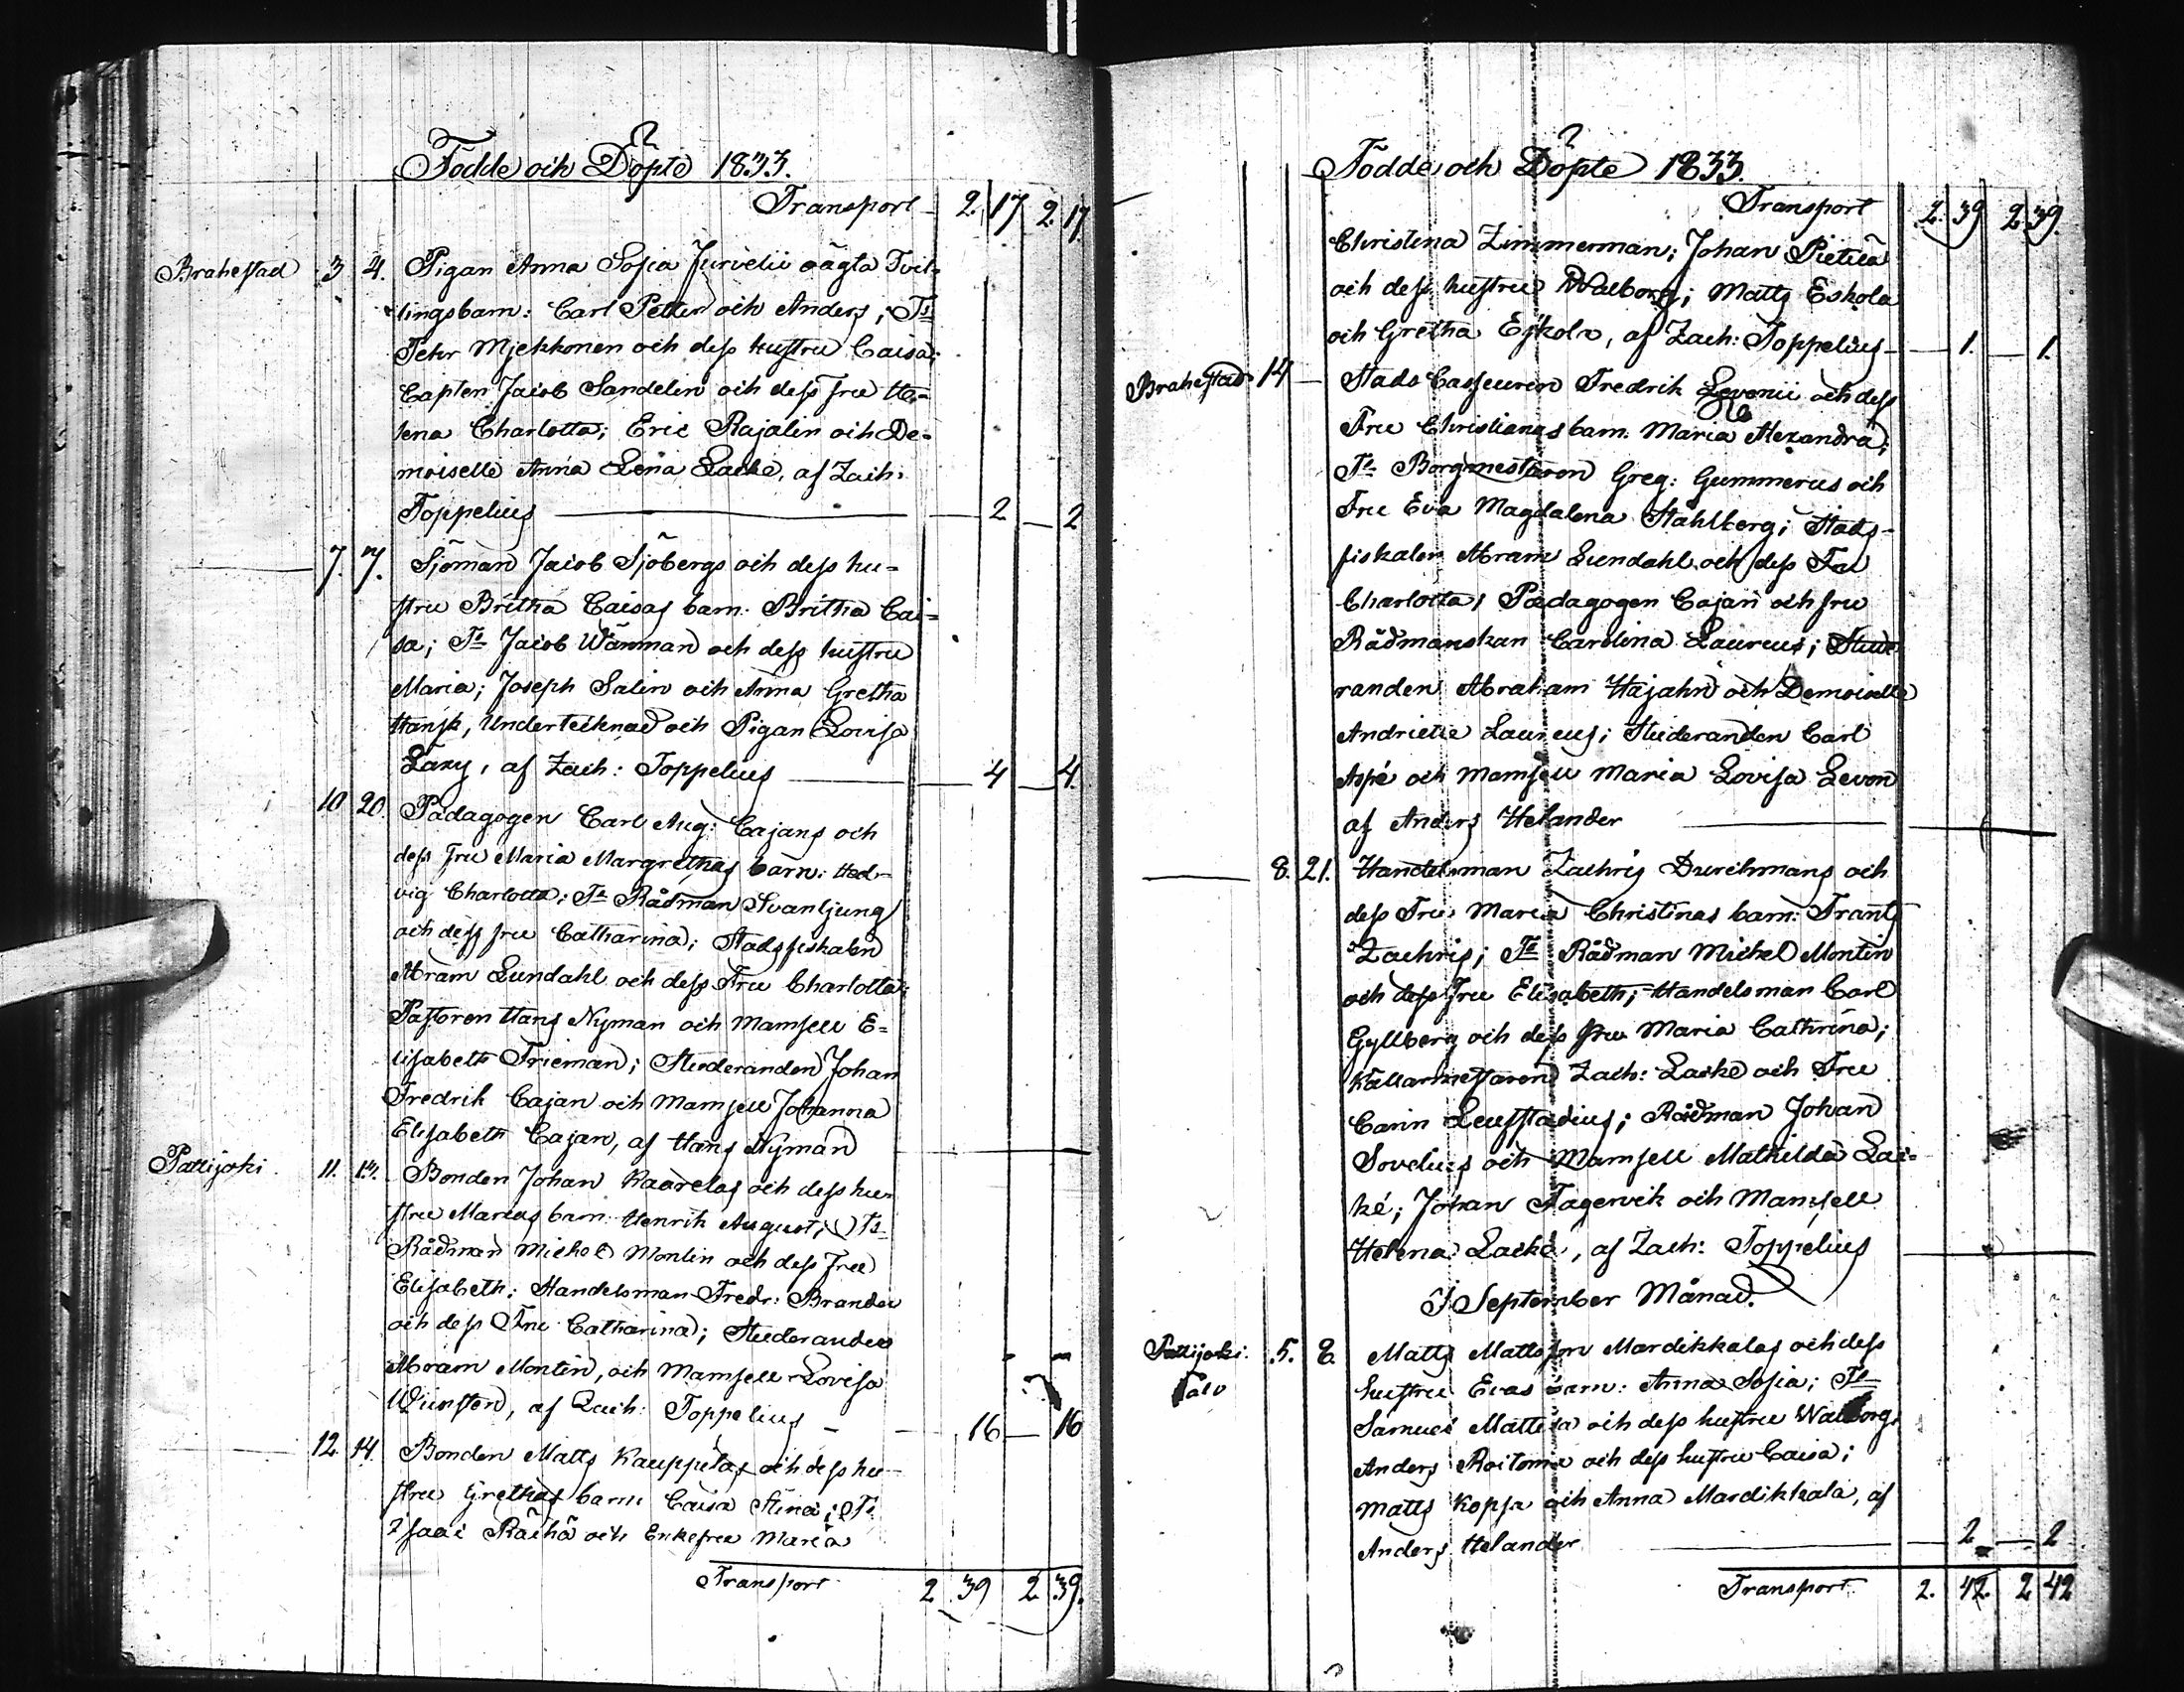 Födde och Döpte 1833.
Transport 2. 17 2. 17.
Brahestad 3 4. Pigan Anna Sofia Jurvelii oägta Tvil-
lingsbarn: Carl Petter och Anders; Ts
Pehr Mjekkonen och dess hustru Caisa;
Capten Jacob Sandelin och dess fru He-
lena Charlotta; Eric Rajalin och De-
moiselle Anna Lena Lacke, af Zach:
Toppelius — 2 — 2
7. 7. Sjöman Jacob Sjöbergs och dess hu-
stru Britha Caisas barn: Britha Cai-
sa; Ts Jacob Wänman och dess hustru
Maria; Joseph Salin och Anna Gretha
Hansk, Undertecknad och Pigan Lovisa
Lany, af Zach: Toppelius — 4 — 4.
10 20. Pädagogen Carl Aug: Cajans och
dess fru Maria Margrethas barn: Hed-
vig Charlotta; Ts Rådman Svanljung
och dess fru Catharina; Stadsfiskalen
Abram Lundahl och dess Fru Charlotta;
Pastoren Hans Nyman och Mamsell E-
lisabeth Frieman; Studeranden Johan
Fredrik Cajan och Mamsell Johanna
Elisabeth Cajan, af Hans Nyman
Pattijoki 11. 13. Bonden Johan Kaarelas och dess hu-
stru Marias barn: Henrik August; Ts
Rådman Michel Montin och dess Fru
Elisabeth; Handelsman Fredr: Brander
och dess Fru Catharina; Studeranden
Abram Montin, och Mamsell Lovisa
af Zach: Toppelius — 16 — 16
12 14. Bonden Matts Kauppilas och dess hu-
stru Grethas barn Caisa Stina; Ts
Isaac Räihä och Enkefru Maria
Transport 2 39 2. 39.
Födde och Döpte 1833.
Transport 2. 39 2 39.
Christina Zimmerman; Johan Pietilä
och dess hustru Walborg; Matts Eskola
och Gretha Eskola, af Zach: Toppelius — 1. — 1.
Brahestad 14 — Stads Casseuren Fredrik Levonii och dess
Fru Christianas barn: Maria Alexandra;
Ts Borgmestaren Greg: Gummerus och
Fru Eva Magdalena Ståhlberg; Stads-
fiskalen Abram Lundahl och dess Fru
Charlotta; Pædagogen Cajan och fru
Rådmanskan Carolina Laureus; Stude-
randen Abraham Hajahn och Demoiselle
Andriette Laureus; Studeranden Carl
Aspé och Mamsell Maria Lovisa Levon
af Anders Helander
8. 21. Handelsman Zachris Durchmans och
dess Fru Maria Christinas barn: Frants
Zachris; Ts Rådman Michel Montin
och dess Fru Elisabeth; Handelsman Carl
Gyllberg och dess fru Maria Cathrina;
Källarmestaren Zach: Lacke och Fru
Carin Leufstadius; Rådman Johan
Sovelius och Mamsell Mathilda Lac-
ké; Johan Fagervik och Mamsell
Helena Lacké, af Zach: Toppelius
I September Månad.
Pattijoki 5. 8. Matts Mattsson Mardikkalas och dess
hustru Evas barn: Anna Sofia; Ts
Samuel Mattila och dess hustru Walborg;
Anders Roitomie och dess hustru Caisa;
Matts Kopsa och Anna Mardikkala, af
Anders Helander — 2 — 2
Transport 2. 42. 2 42